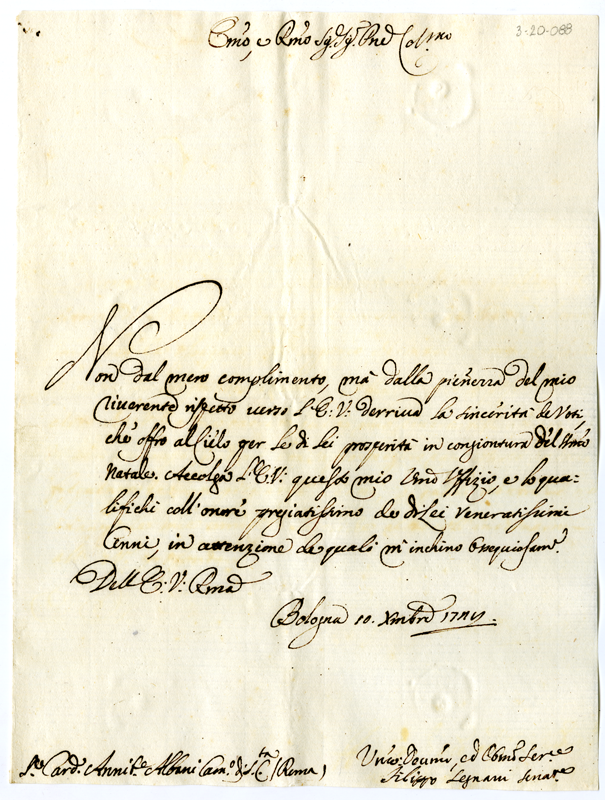 3-20-088
Emo, e Rmo Sigr Sigr Pne Colmo
Non dal mero complimento, mà dalla pienezza del mio
riverente rispetto verso l'E: V: derriva la sincerità de Voti,
che offro al Cielo per le di Lei prosperità in congiontura del
Natale. Accolga l'E: V: questo mio Uffizio, e lo qua-
lifichi coll'onore pregiatissimo de di Lei veneratissimi
Cenni, in attenzione de quali m'inchino ossequiosamte
Dell'E: V: Rma
Bologna 10. Xmbre
Sr Card. Annile Albani Camo di S. C. (Roma)
Devmo, ed Obmo Serre
Filippo Legnani Senatre